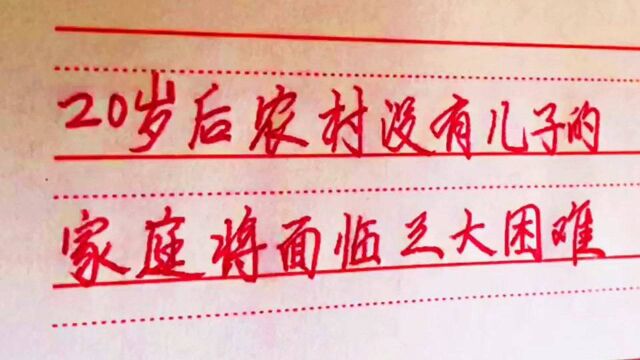 20岁后农村没有儿子的
家庭将面临三大困难